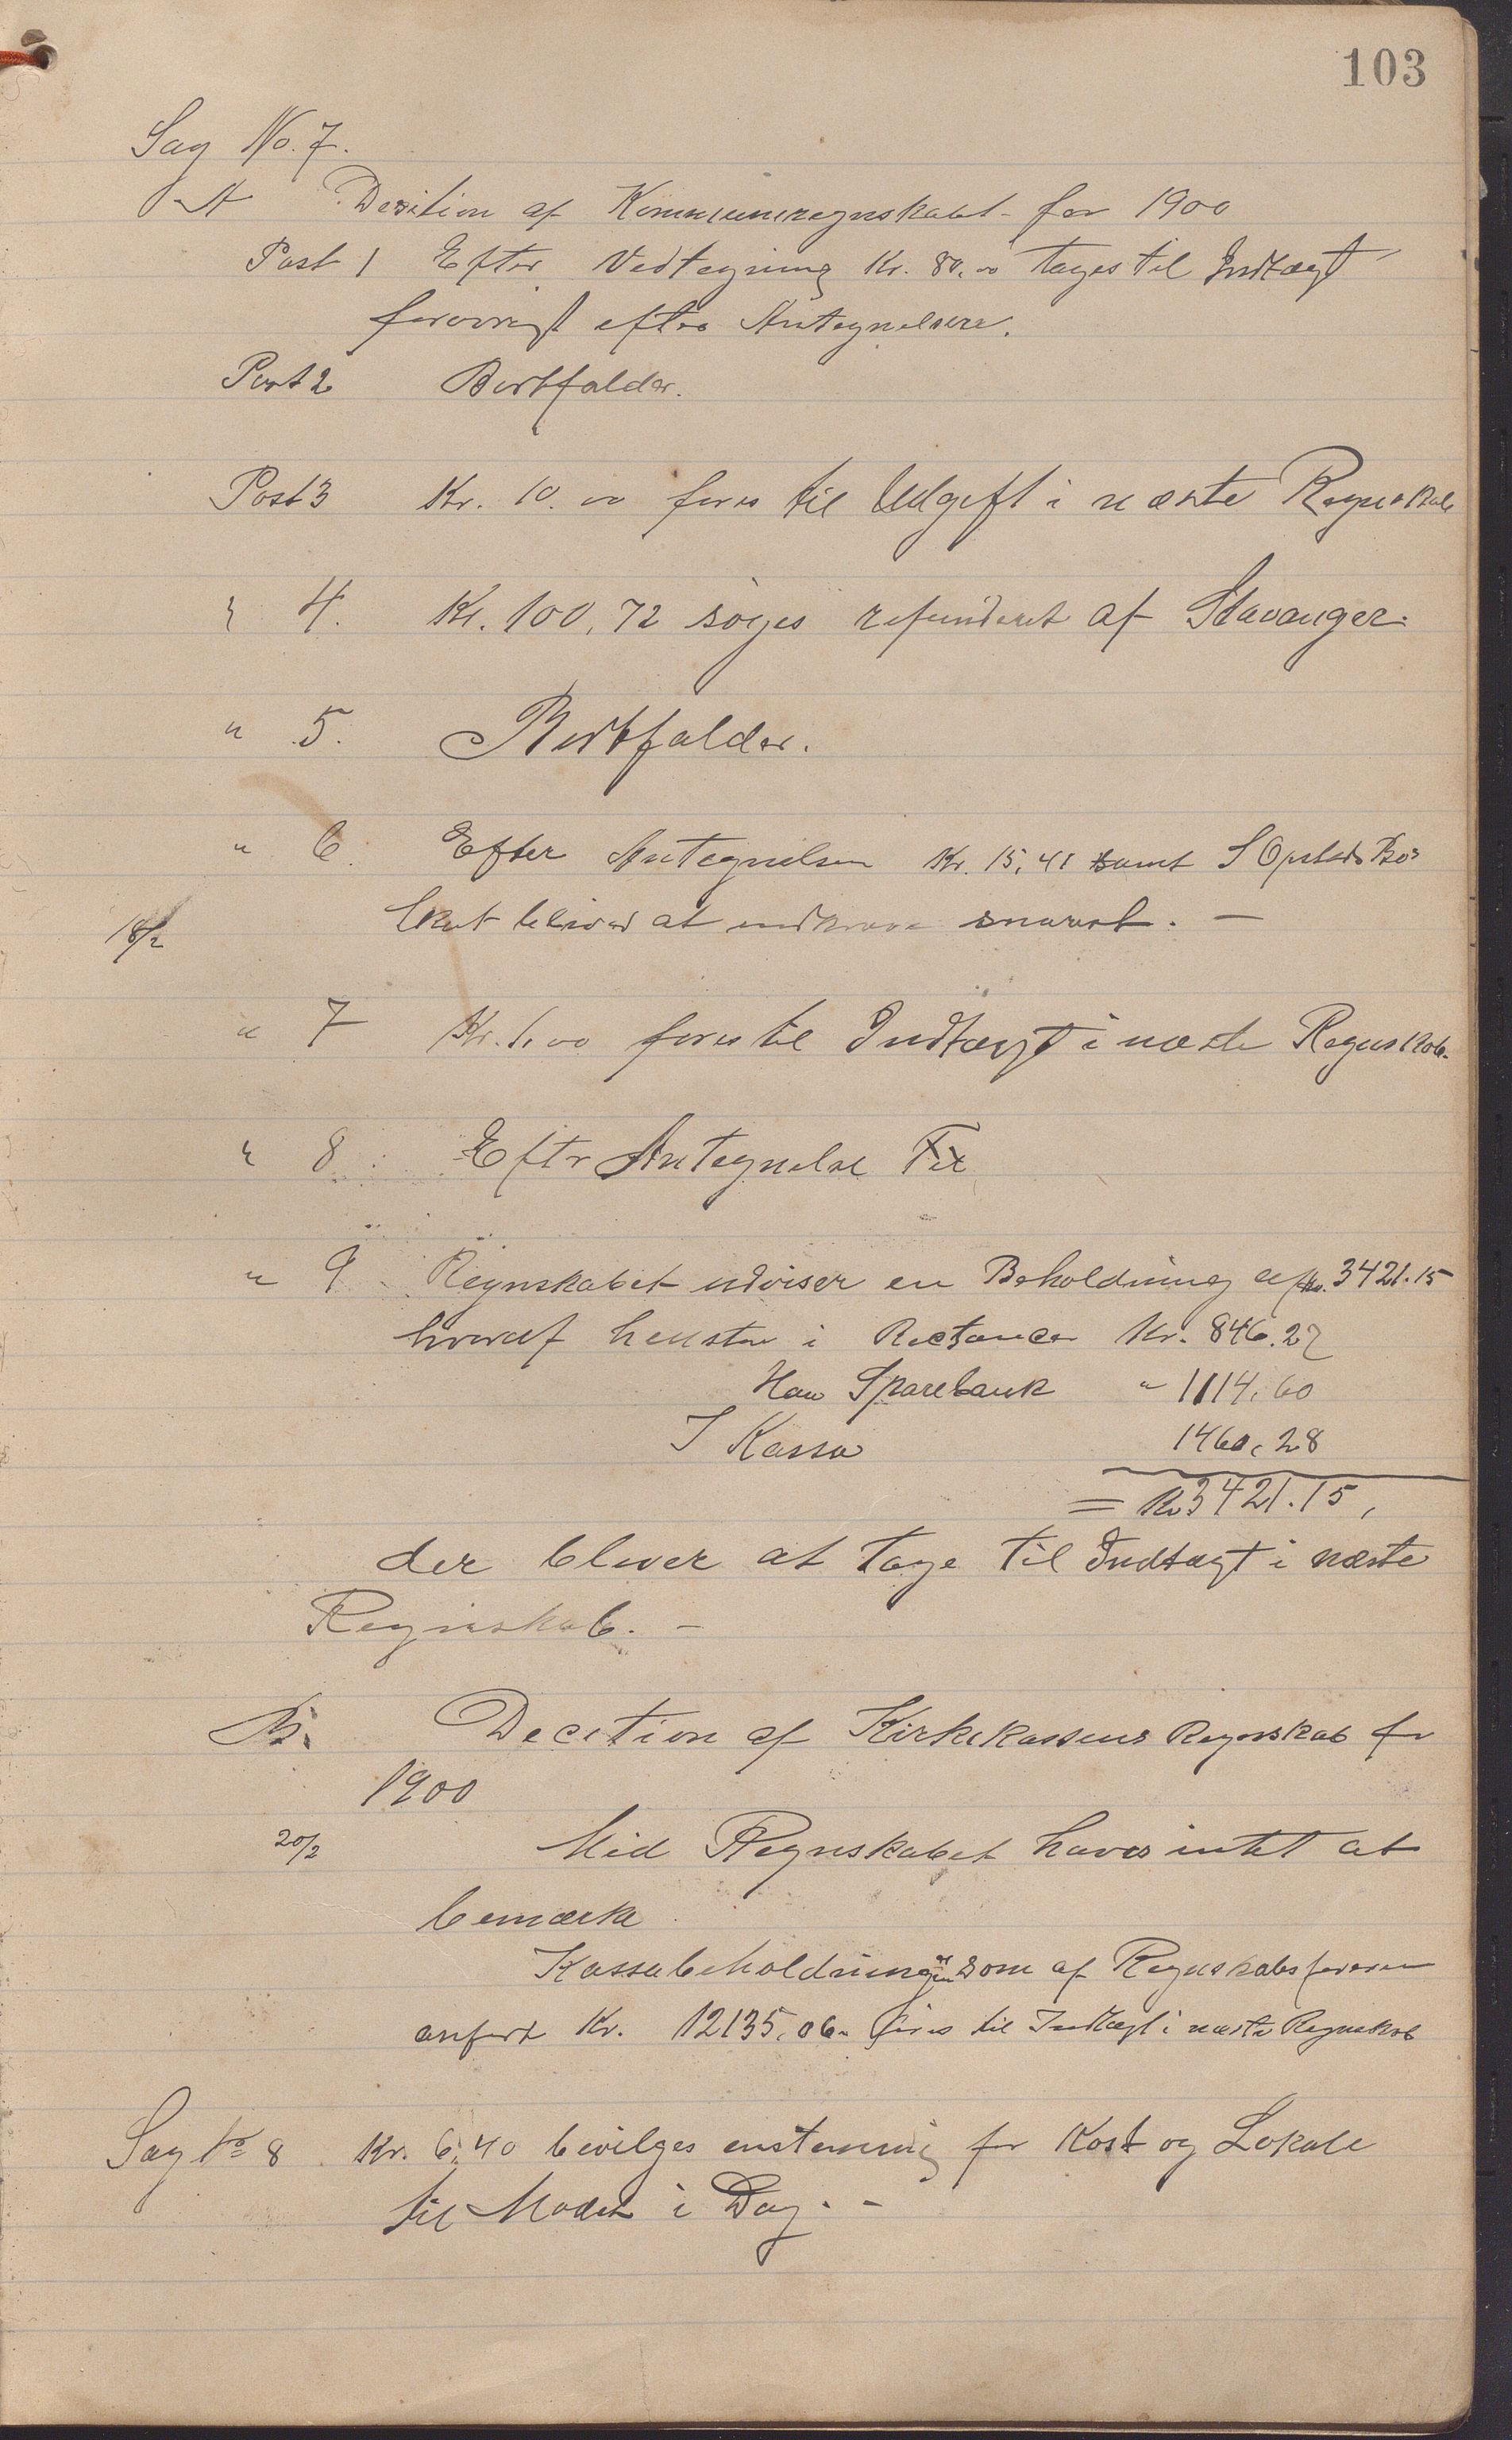 103
Sag No. 7.
A Desition af Kommuneregnskabet for 1900
Post 1 Efter Vedtegning Kr. 80.00 tages til Indtægt
forøvrigt efter Antegnelsern.
Post 2 Bortfalder.
Post 3 Kr. 10.00 føres til Udgift i næste Regnskab
" 4. Kr. 100,72 søges refunderet af Stavanger.
" 5. Bortfalder.
" 6. Efter Antegnelsen Kr. 15,41 samt S Opstads
Skat bliver at indkræve snarest. -
18/2
" 7 Kr. 1,00 føres til Indtægt i næste Regnskab.
" 8. Eftr Antegnelse
" 9. Regnskabet udviser en Beholdning af Kr. 3421.15
hvoraf henstar i Rectancer Kr. 846.27
Haa Sparebank " 1114,60
I Kassa 1460,28
= Kr 3421.15,
der bliver at tage til Indtægt i næste
Regnskab. -
B. Decition af Kirkekassens Regnskab for
1900
20/2 Mid Regnskabet haves intet at
bemærke.
Kassabeholdningen som af Regnskabsføreren
anført Kr. 12135,06 føres til Indtægt i næste Regnskab
Sag No 8. Kr. 6,40 bevilges enstemmig for Kost og Lokale
til Mødet i Dag. -